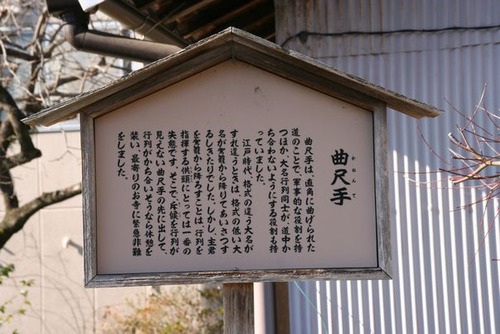 曲尺手
かねんて
曲尺手は、直角に曲げられた
道のことで、軍事的な役割を持
つほか、大名行列同士が、道中か
ち合わないようにする役割も持
っていました。
江戸時代、格式の違う大名が
すれ違うときは、格式の低い大
名が駕籠から降りてあいさつす
るしきたりでした。しかし、主君
を駕籠から降ろすことは、行列を
指揮する供頭にとっては一番の
失態です。そこで、斥候を行列が
見えない曲尺手の先に出して、
行列がかち合いそうなら休憩を
装い、最寄りのお寺に緊急避難
をしました。